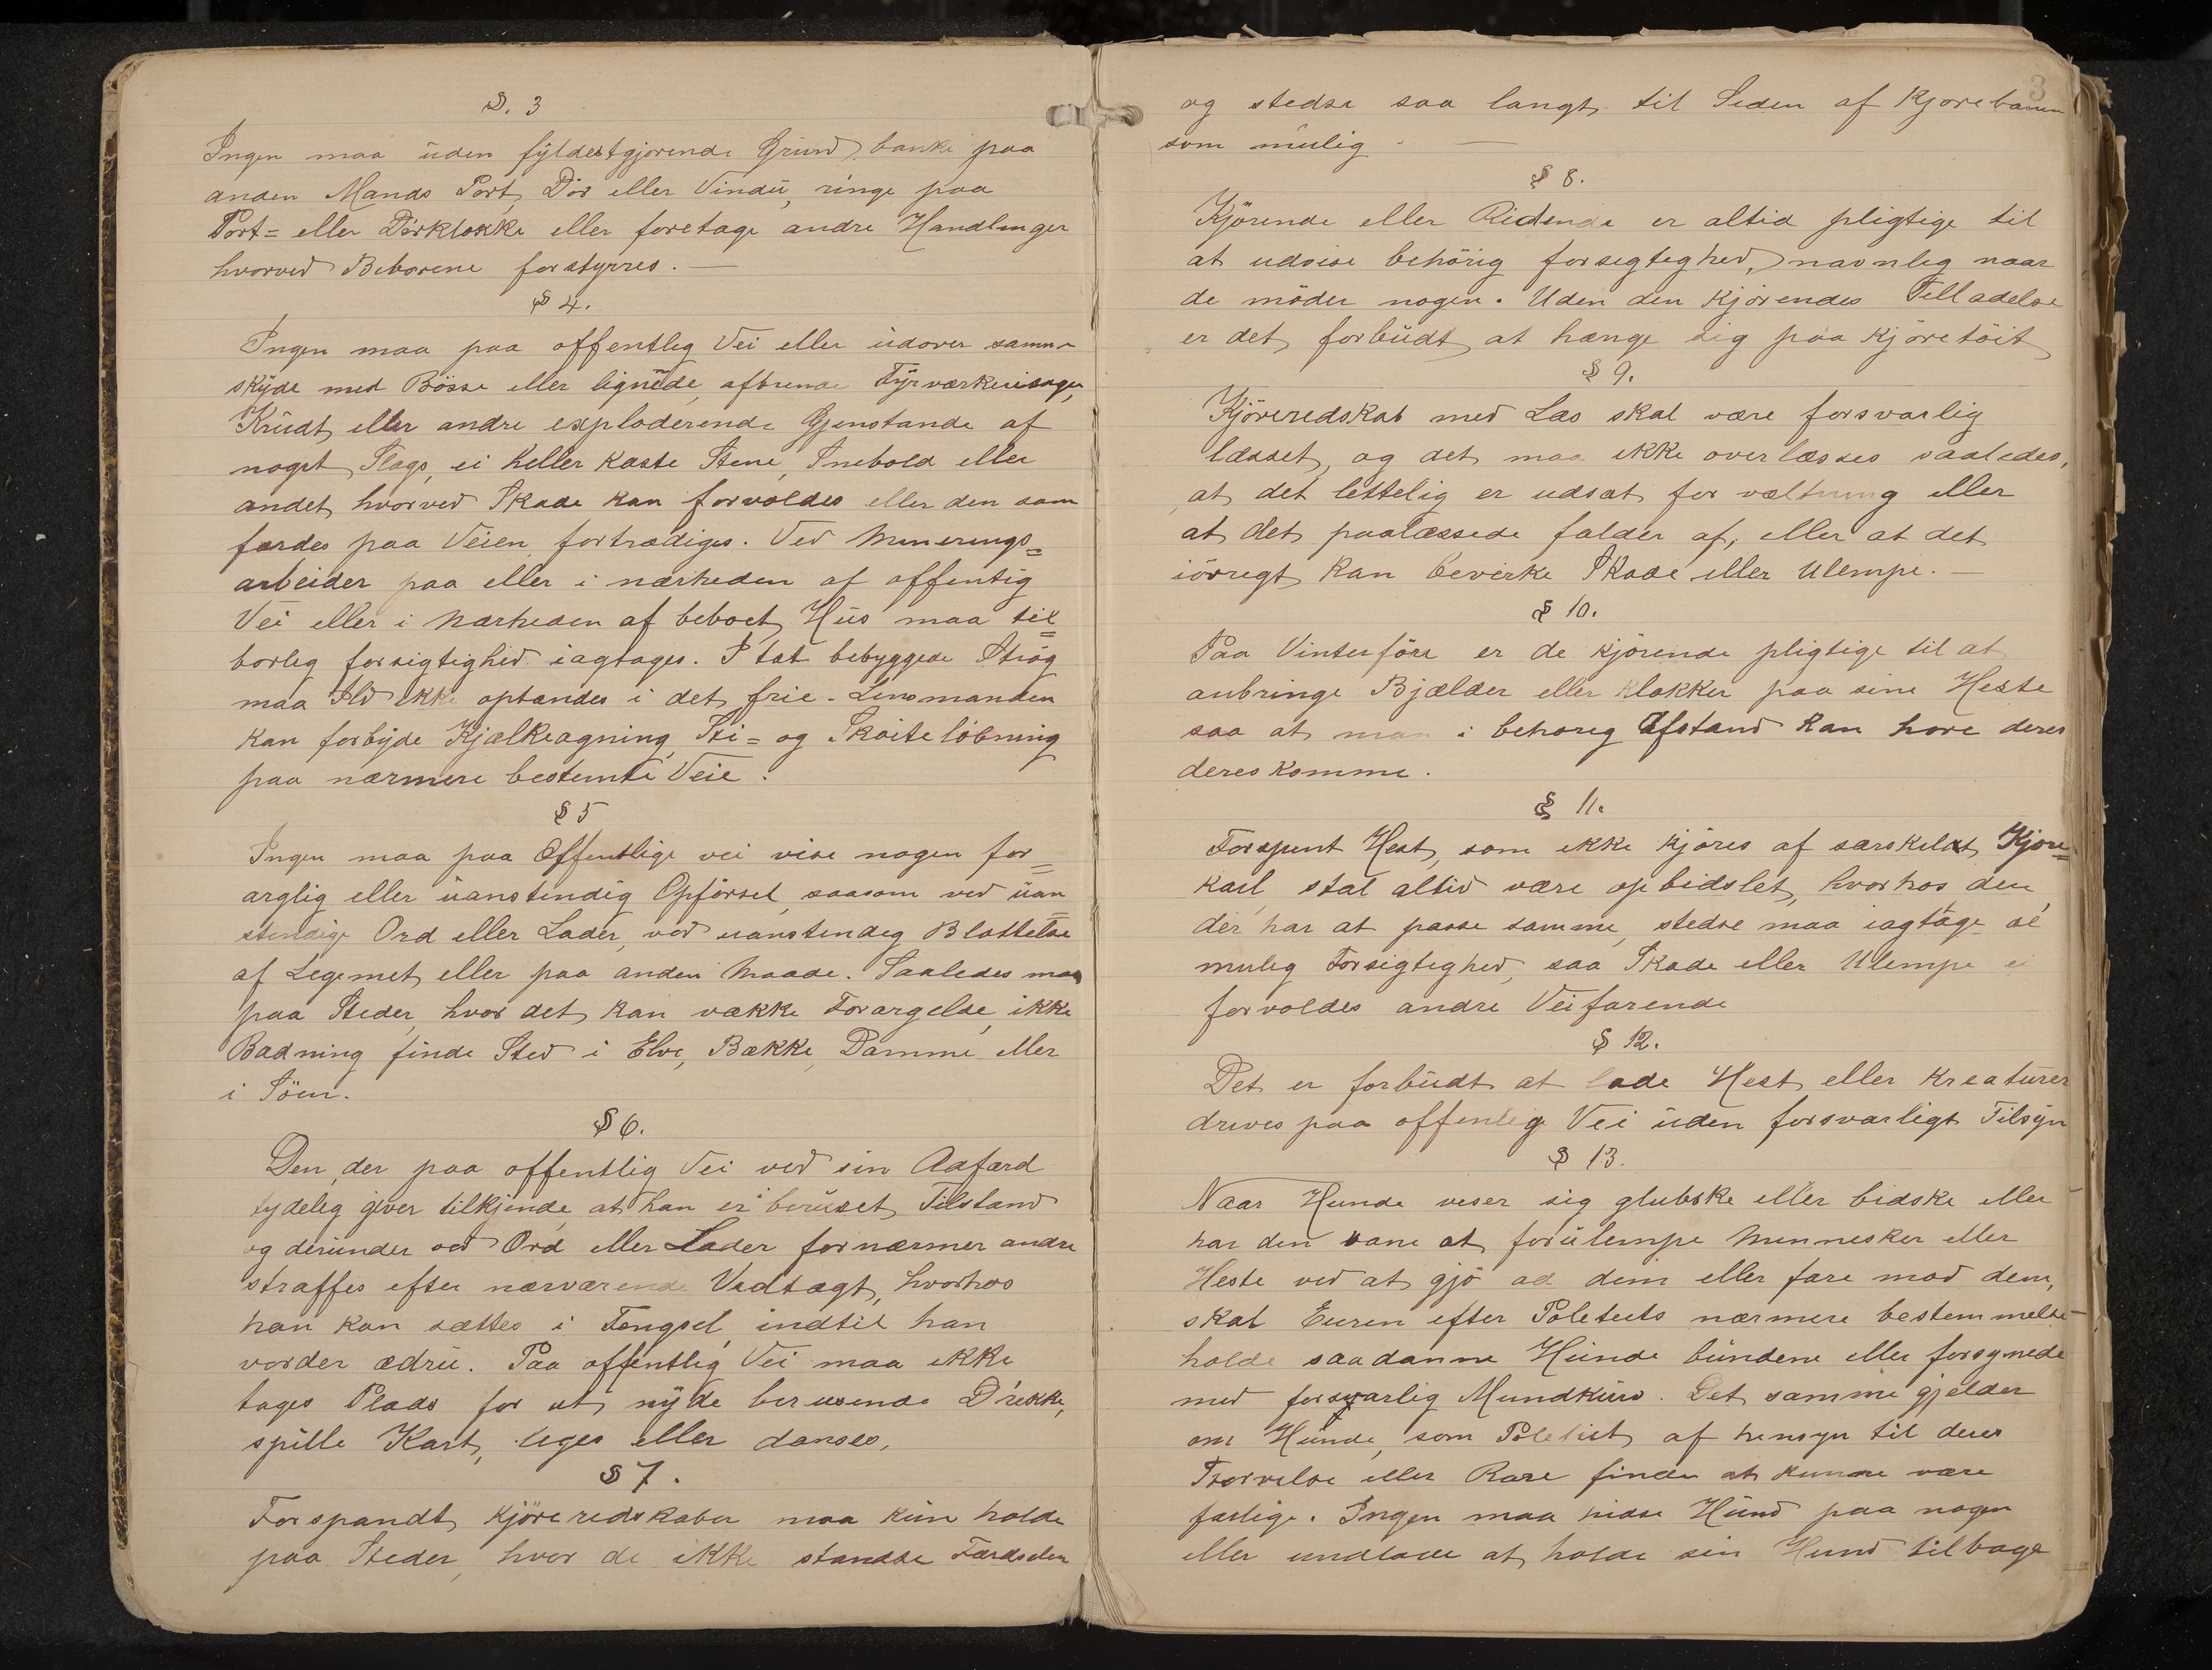 §. 3
Ingen maa uden fyldestgjørende Grund banke paa
anden Mands Port, Dør eller Vindu, ringe paa
Port= eller Dørklokke eller foretage andre Handlinger
hvorved Beboerene forstyrres. —
§ 4.
Ingen maa paa offentlig Vei eller udover samme
skyde med Bösse eller lignede, afbrende Fyrværkerisager,
Krudt eller andre exploderende Gjenstande af
noget Slags, ei heller kaste Stene, Snebold eller
andet hvorved Skade kan forvoldes eller den som
færdes paa Veien fortrædiges. Ved Minerings=
arbeider paa eller i nærheden af offentig
Vei eller i Nærheden af beboet Hus maa til=
børlig forsigtighed iagtages. I tæt bebyggede Strøg
maa Ild ikke optændes i det frie. Lensmanden
kan forbyde Kjælkeagning, Ski= og Skøiteløbning
paa nærmere bestemte Veie.
§ 5
Ingen maa paa Offentlige vei vise nogen for=
arglig eller uanstendig Opførsel, saasom ved uan=
stendige Ord eller Lader, ved uanstendig Blottelse
af Legemet eller paa anden Maade. Saaledes maa
paa Steder, hvor det kan vække Forargelse, ikke
Badning finde Sted i Elve, Bække, Damme eller
i Söen.
§ 6.
Den, der paa offentlig Vei ved sin Adfærd
tydelig giver tilkjende, at han er i beruset Tilstand
og derunder ved Ord eller Lader fornærmer andre
straffes efter nærværende Vedtægt, hvorhos
han kan sættes i Fengsel, indtil han
vorder ædru. Paa offentlig Vei maa ikke
tages Plads for at nyde berusende Drekke,
spille Kart, leges eller danses.
§ 7.
Forspandt kjöreredskaber maa kun holde
paa Steder, hvor de ikke standse Færdselen
3
og stedse saa langt til Siden af Kjørebanen
som mulig. —
§ 8.
Kjörende eller Ridende er altid pligtige til
at udvise behörig forsigtighed, navnlig naar
de möder nogen. Uden den kjörendes Tilladelse
er det forbudt at hænge sig paa kjöretöit
§ 9.
Kjöreredskab med Læs skal være forsvarlig
læsset, og det maa ikke overlæsses saaledes,
at det lettelig er udsat for væltning eller
at det paalæssede falder af, eller at det
iövregt kan bevirke Skade eller Ulempe. —
§ 10.
Paa Vinterföre er de kjörende pligtige til at
anbringe Bjælder eller klokker paa sine Heste
saa at man i behørig Afstand kan høre deres
deres komme.
§ 11.
Forspent Hest, som ikke kjöres af særskilt Kjøre=
karl, skal altid være opbidslet, hvorhos den,
der har at passe samme, stedse maa iagtage al
mulig Forsigtighed, saa Skade eller Ulempe ei
forvoldes andre Veifarende
§ 12.
Det er forbudt at lade Hest eller Kreaturer
drives paa offenlig Vei uden forsvarligt Tilsyn
§ 13.
Naar Hunde viser sig glubske eller bidske eller
har den vane at forulempe Mennesker eller
Heste ved at gjö ad dem eller fare mod dem,
skal Eieren efter Politiets nærmere bestemmelse
holde saadanne Hunde bundene eller forsynede
med forsvarlig Mundkurv. Det samme gjelder
om Hunde, som Politiet af hensyn til deres
Størrelse eller Race finder at kunne være
farlige. Ingen maa hidse Hund paa nogen
eller undlade at holde sin Hund tilbage